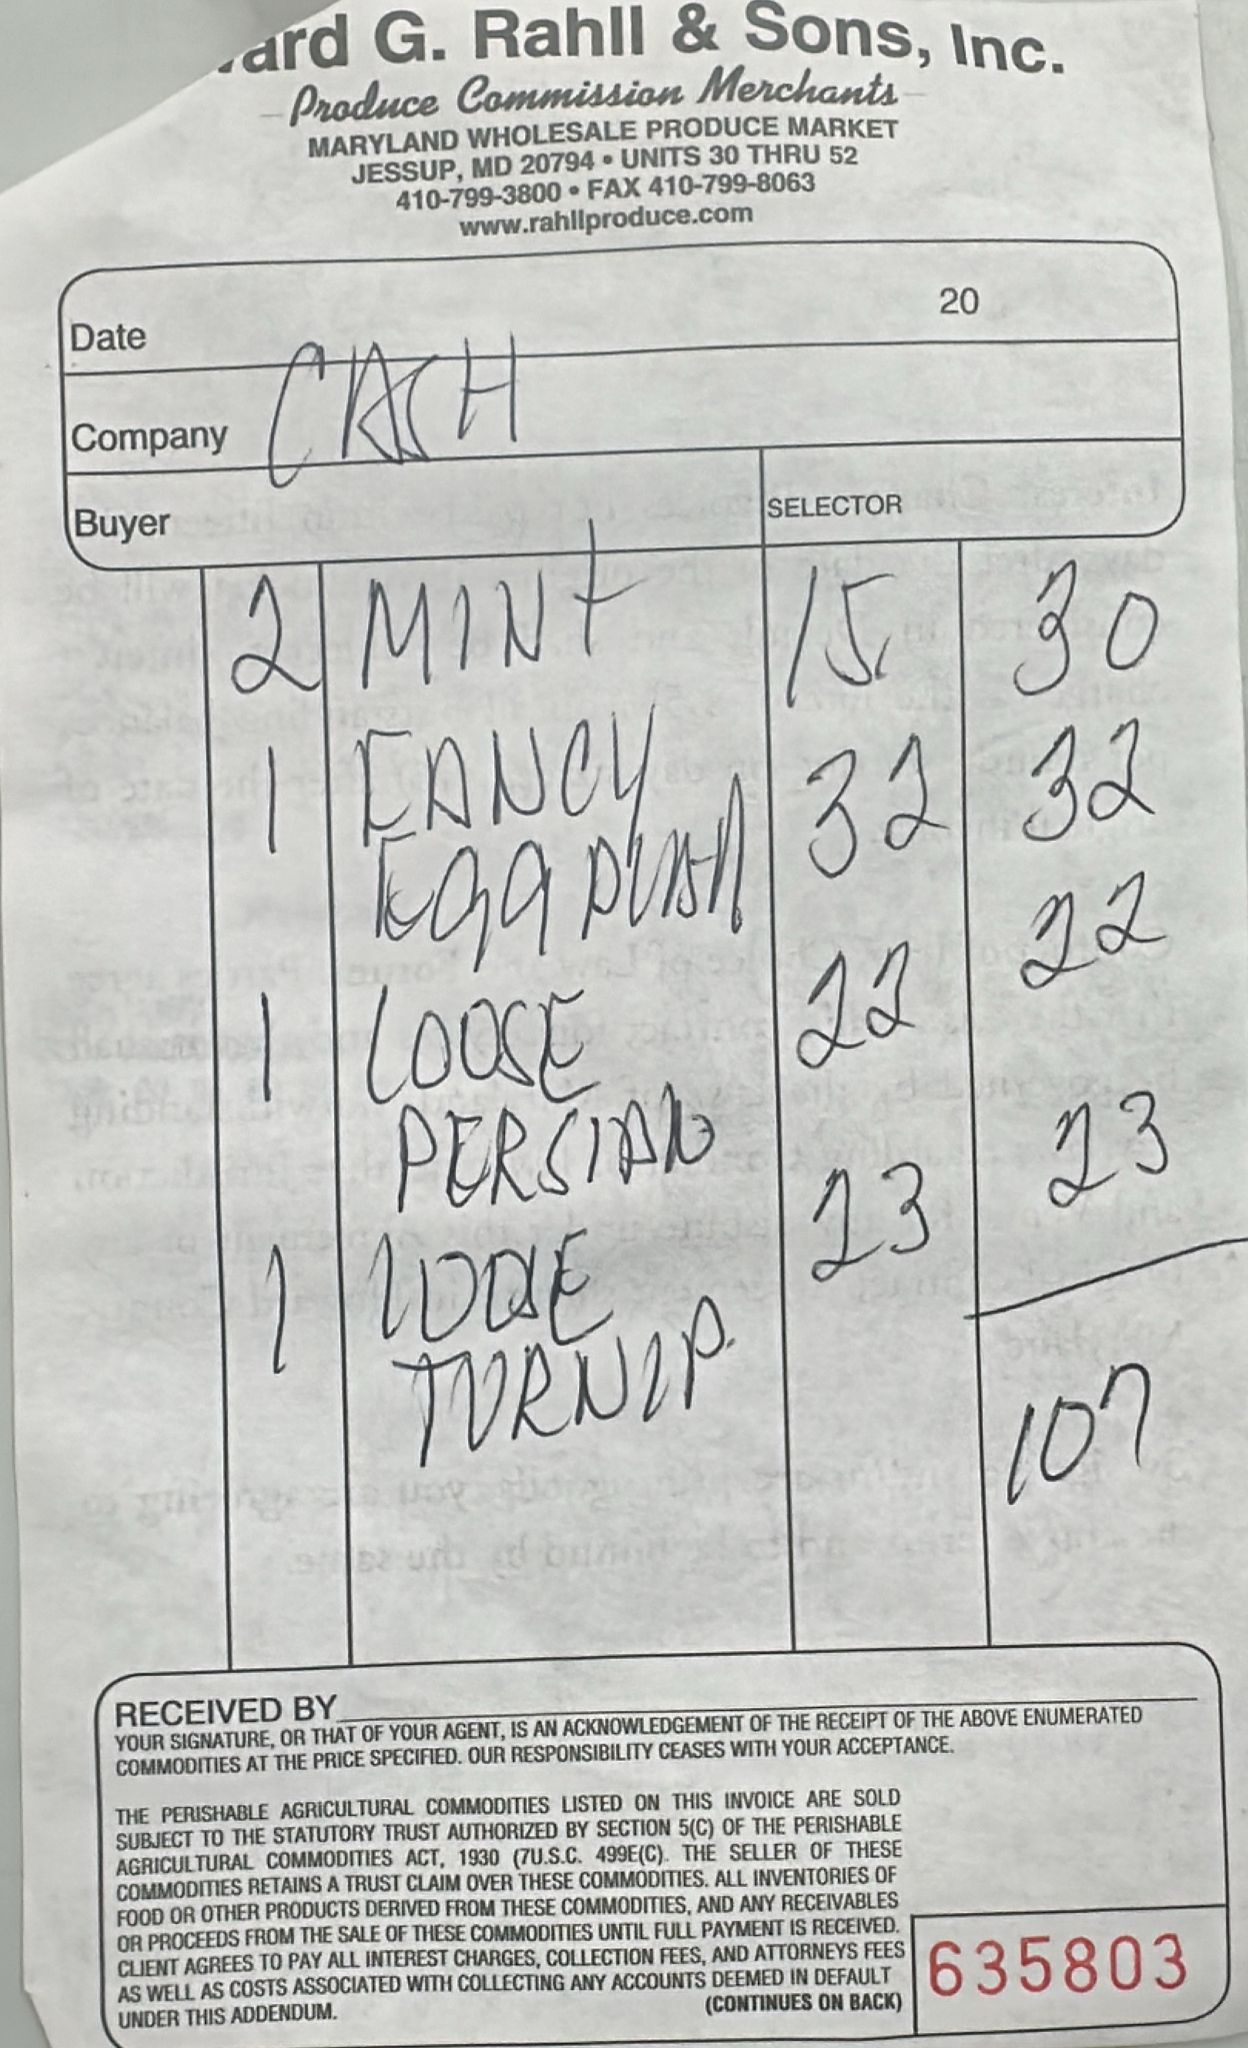 ard G. Rahll & Sons, Inc.
Produce Commission Merchants
MARYLAND WHOLESALE PRODUCE MARKET
JESSUP, MD 20794 • UNITS 30 THRU 52
410-799-3800 • FAX 410-799-8063
www.rahllproduce.com
Date 20
Company CASH
Buyer SELECTOR
2 MINT 15. 30
1 FANCY 32 32
EGG PLANT
1 LOOSE 22 22
PERSIAN
1 LOOSE 23 23
TURNIP.
107
RECEIVED BY
YOUR SIGNATURE, OR THAT OF YOUR AGENT, IS AN ACKNOWLEDGEMENT OF THE RECEIPT OF THE ABOVE ENUMERATED
COMMODITIES AT THE PRICE SPECIFIED. OUR RESPONSIBILITY CEASES WITH YOUR ACCEPTANCE.
THE PERISHABLE AGRICULTURAL COMMODITIES LISTED ON THIS INVOICE ARE SOLD
SUBJECT TO THE STATUTORY TRUST AUTHORIZED BY SECTION 5(C) OF THE PERISHABLE
AGRICULTURAL COMMODITIES ACT, 1930 (7U.S.C. 499E(C). THE SELLER OF THESE
COMMODITIES RETAINS A TRUST CLAIM OVER THESE COMMODITIES. ALL INVENTORIES OF
FOOD OR OTHER PRODUCTS DERIVED FROM THESE COMMODITIES, AND ANY RECEIVABLES
OR PROCEEDS FROM THE SALE OF THESE COMMODITIES UNTIL FULL PAYMENT IS RECEIVED.
CLIENT AGREES TO PAY ALL INTEREST CHARGES, COLLECTION FEES, AND ATTORNEYS FEES
AS WELL AS COSTS ASSOCIATED WITH COLLECTING ANY ACCOUNTS DEEMED IN DEFAULT
UNDER THIS ADDENDUM. (CONTINUES ON BACK)
635803